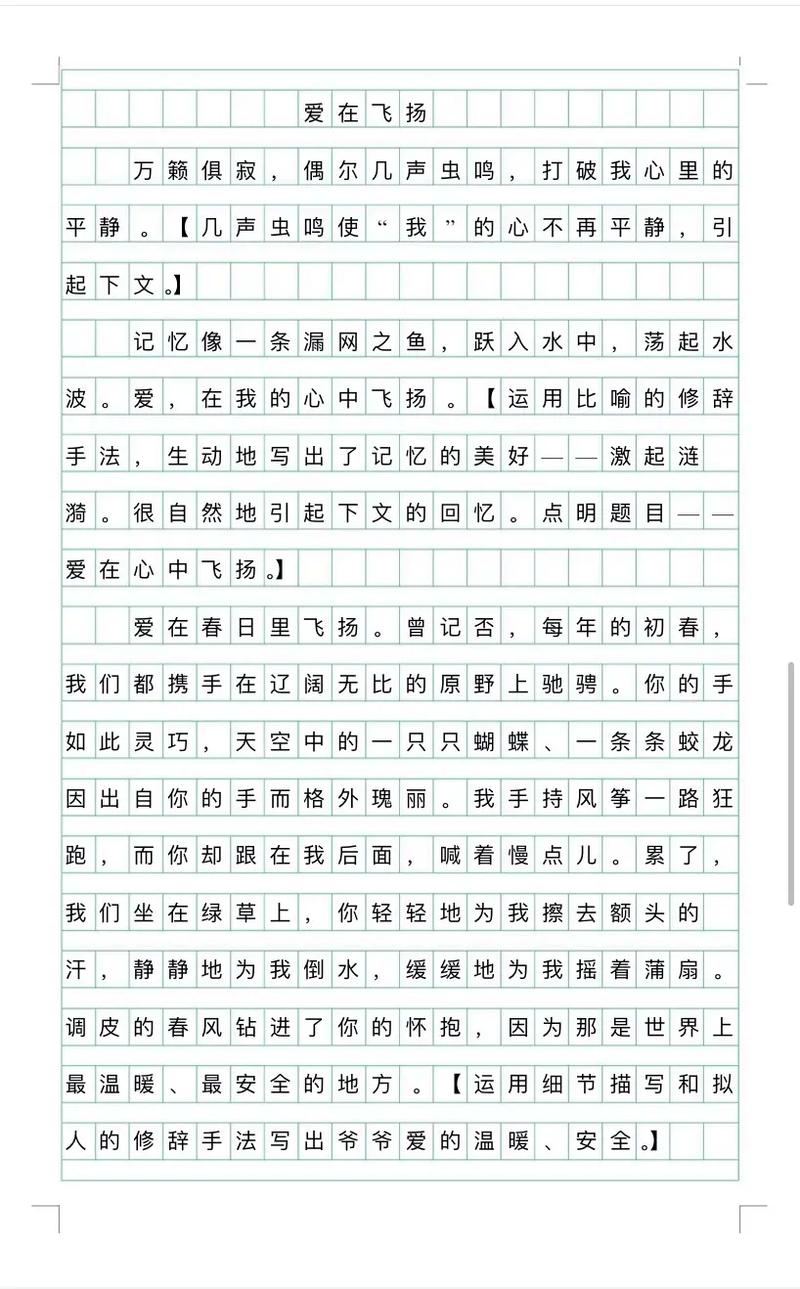 爱在飞扬
万籁俱寂，偶尔几声虫鸣，打破我心里的
平静。【几声虫鸣使“我”的心不再平静，引
起下文。】
记忆像一条漏网之鱼，跃入水中，荡起水
波。爱，在我的心中飞扬。【运用比喻的修辞
手法，生动地写出了记忆的美好——激起涟
漪。很自然地引起下文的回忆。点明题目——
爱在心中飞扬。】
爱在春日里飞扬。曾记否，每年的初春，
我们都携手在辽阔无比的原野上驰骋。你的手
如此灵巧，天空中的一只只蝴蝶、一条条蛟龙
因出自你的手而格外瑰丽。我手持风筝一路狂
跑，而你却跟在我后面，喊着慢点儿。累了，
我们坐在绿草上，你轻轻地为我擦去额头的
汗，静静地为我倒水，缓缓地为我摇着蒲扇。
调皮的春风钻进了你的怀抱，因为那是世界上
最温暖、最安全的地方。【运用细节描写和拟
人的修辞手法写出爷爷爱的温暖、安全。】